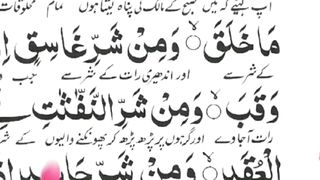 آپ کہئے کہ میں صبح کے مالک کی پناہ لیتا ہوں تمام مخلوقات
مَا خَلَقَ ۙ وَمِنْ شَرِّ غَاسِقٍ
کے شر سے اور اندھیری رات کے شر سے جب وہ
وَقَبَ ۙ وَمِنْ شَرِّ النَّفّٰثٰتِ
رات آجاوے اور گرہوں پر پڑھ پڑھ کر پھونکنے والیوں کے شر
الْعُقَدِ ۙ وَمِنْ شَرِّ حَاسِدٍ